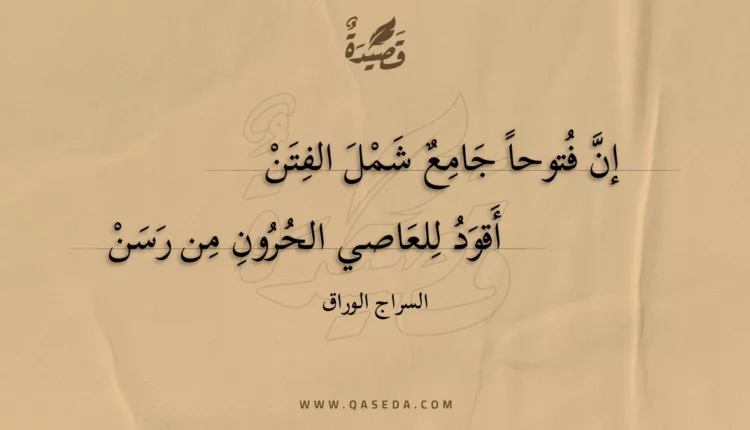 قَصِيْدَةٌ
إنَّ فُتوحاً جَامِعٌ شَمْلَ الفِتَنْ
أَقوَدُ لِلعَاصي الحُرُونِ مِن رَسَنْ
السراج الوراق
WWW.QASEDA.COM